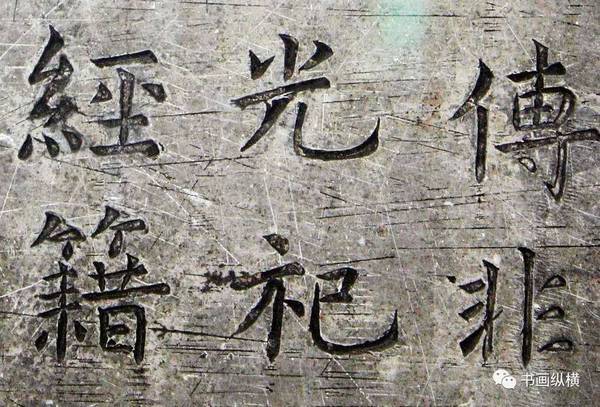 傅非
光祀
經籍
书画纵横